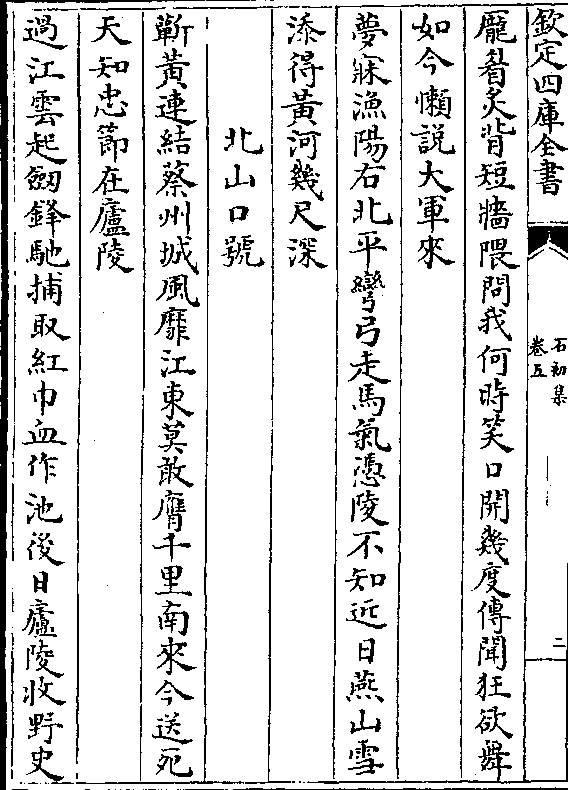 欽定四庫全書
石初集
卷五
二
龎眉炙背短牆隈問我何時笑口開幾度傳聞狂欲舞
如今懶說大軍來
夢寐漁陽右北平彎弓走馬氣憑陵不知近日燕山雪
添得黃河幾尺深
北山口號
蘄黃連結蔡州城風靡江東莫敢膺千里南來今送死
天知忠節在廬陵
過江雲起劒鋒馳捕取紅巾血作池後日廬陵收野史